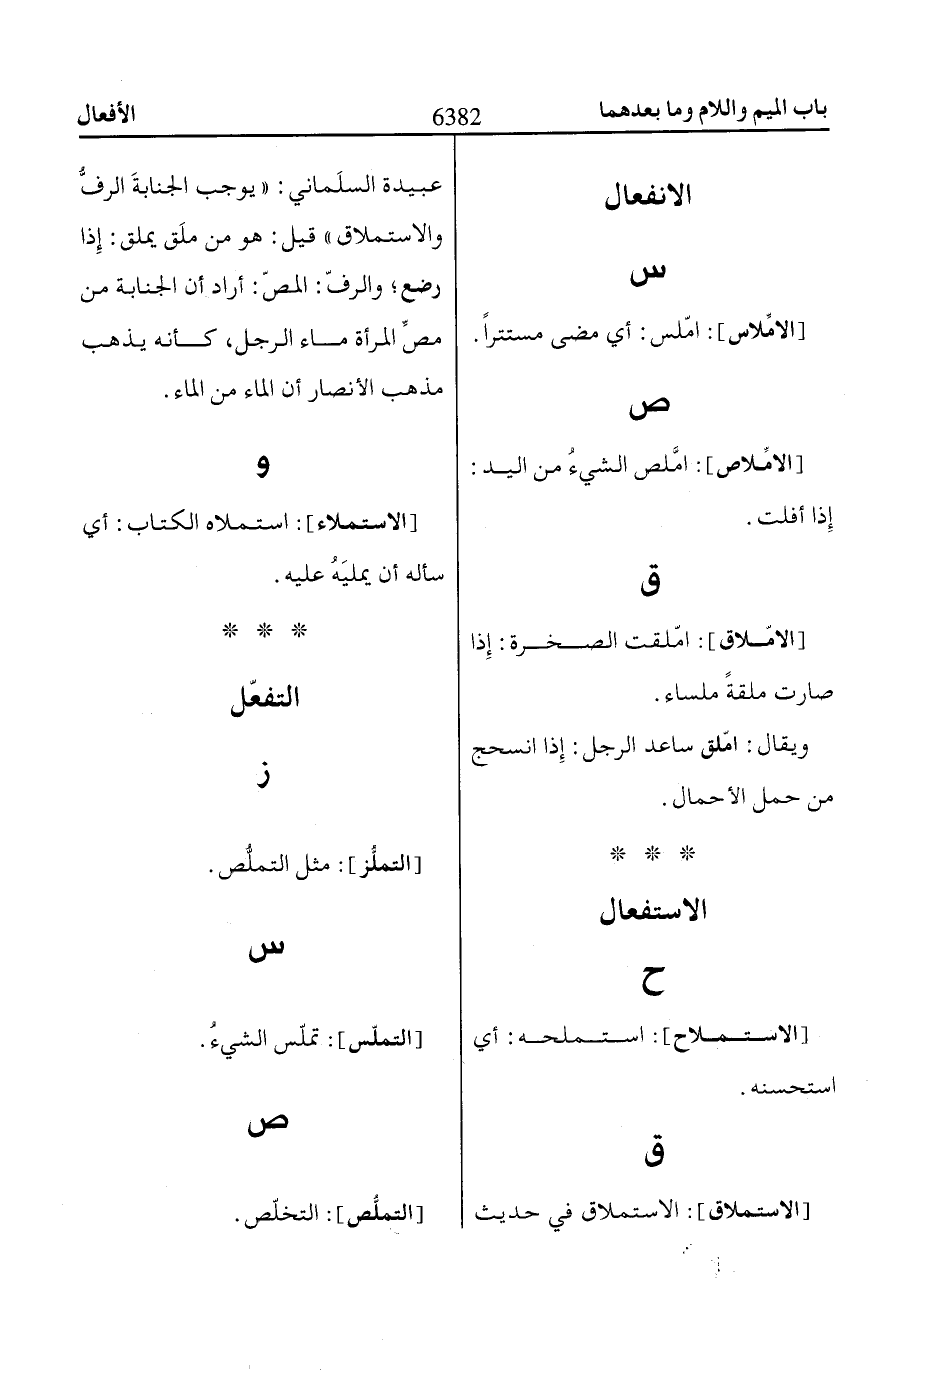 باب الميم واللام وما بعدهما
6382
الأفعال
الانفعال
س
[الامِّلاس]: امّلس: أي مضى مستتراً.
ص
[الامِّلاص]: امَّلص الشيءُ من اليد:
إِذا أفلت.
ق
[الامّلاق]: امّلقت الصخرة: إِذا
صارت ملقةً ملساء.
ويقال: امّلق ساعد الرجل: إِذا انسحج
من حمل الأحمال.
* * *
الاستفعال
ح
[الاستملاح]: استملحه: أي
استحسنه.
ق
[الاستملاق]: الاستملاق في حديث
عبيدة السلَماني: «يوجب الجنابةَ الرفُّ
والاستملاق» قيل: هو من ملَق يملق: إِذا
رضع؛ والرفّ: المصّ: أراد أن الجنابة من
مصِّ المرأة ماء الرجل، كأنه يذهب
مذهب الأنصار أن الماء من الماء.
و
[الاستملاء]: استملاه الكتاب: أي
سأله أن يمليَهُ عليه.
* * *
التفعّل
ز
[التملُّز]: مثل التملُّص.
س
[التملّس]: تملّس الشيءُ.
ص
[التملُّص]: التخلّص.